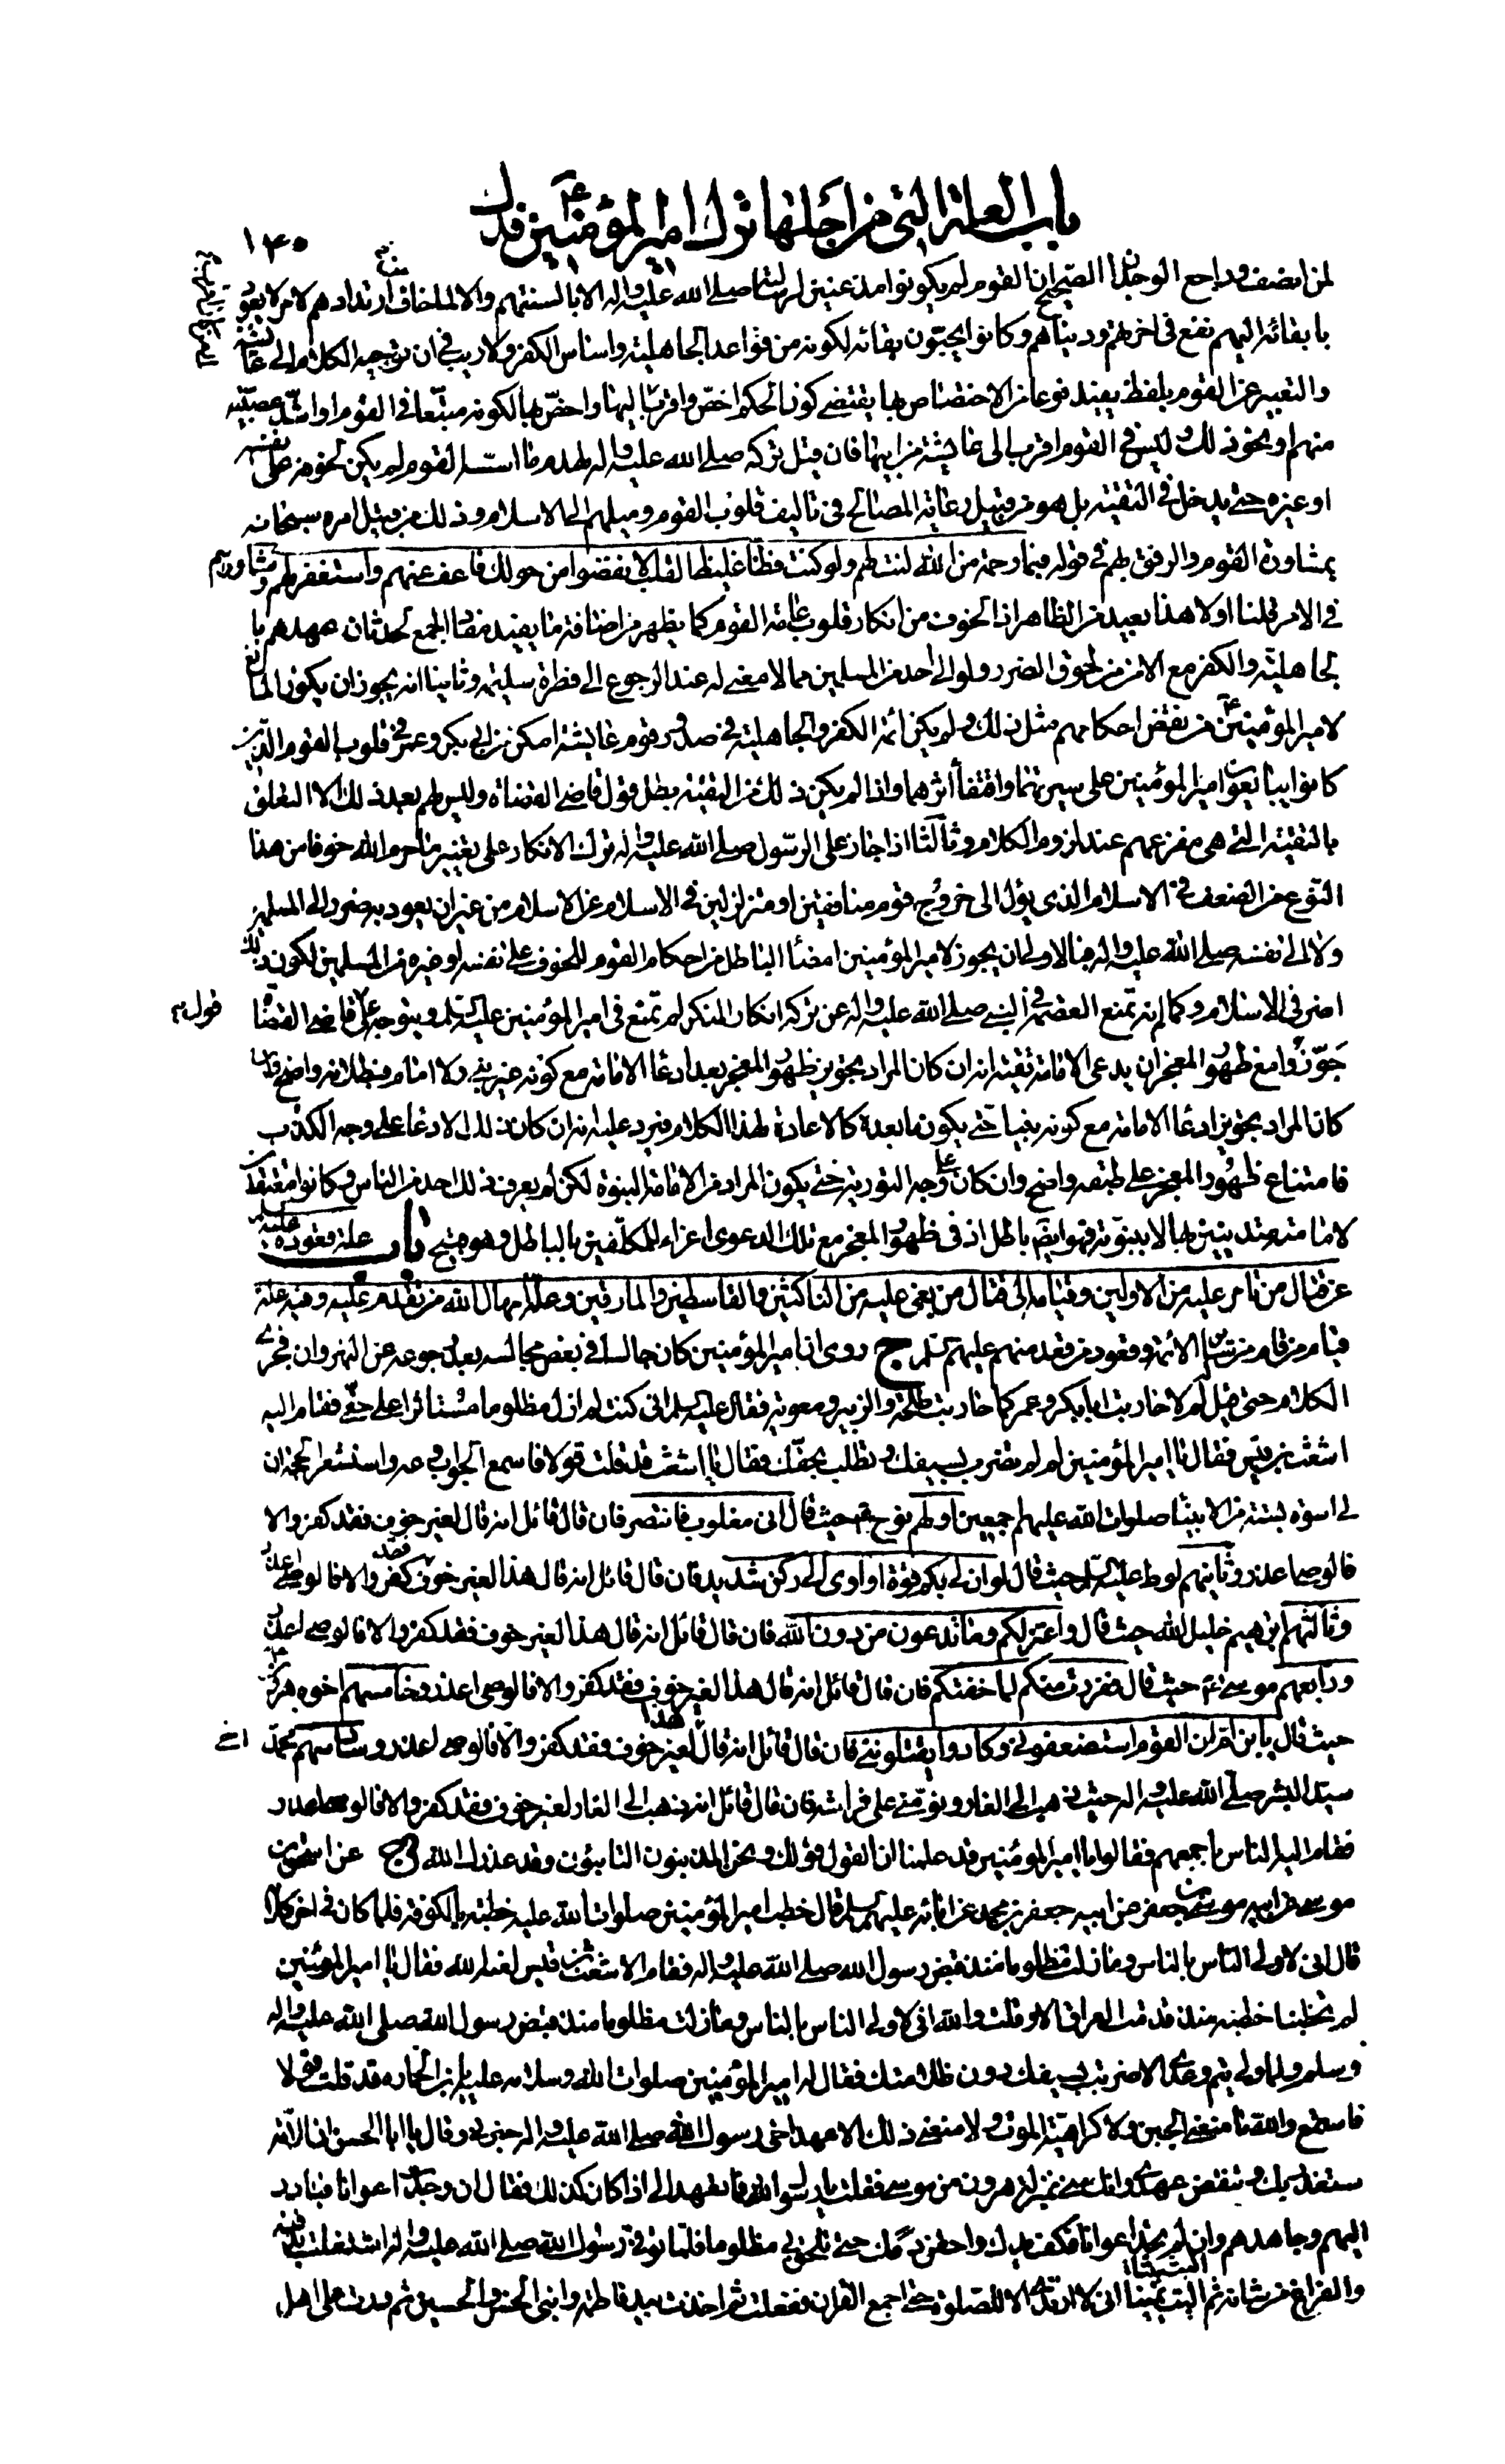 باب العلة التي من اجلها ترك امير المؤمنين ع فدك
١٤٠
لمن انصف وراجع الوجدان الصحيح ان القوم لم يكونوا مذعنين لرسالته صلى الله عليه واله الا بالسنتهم والا لما خاف ارتدادهم لامر لا يعود
بابقائه اليهم نفع في اخرتهم ودنياهم وكانوا يحبون بقائه لكونه من قواعد الجاهلية واساس الكفر ولا ريب في ان توجيه الكلام الى عائشة
والتعبير عن القوم بلفظ يفيد نوعا من الاختصاص بها يقتضي كون الحكم اخص واقرب اليها واخص بها لكونه متبعا في القوم او اشد عصبية
منهم او نحو ذلك وليس في القوم اقرب الى عائشة من ابيها فان قيل تركه صلى الله عليه واله لهدم ما اسسه القوم لم يكن لخوفه على نفسه
او غيره حتى يدخل في التقية بل هو من قبيل رعاية المصالح في تاليف قلوب القوم وميلهم الى الاسلام وذلك من قبيل امره سبحانه
بمشاورة القوم والرفق بهم في قوله فبما رحمة من الله لنت لهم ولو كنت فظا غليظ القلب لانفضوا من حولك فاعف عنهم واستغفر لهم وشاورهم
في الامر قلنا اولا هذا بعيد من الظاهر اذ الخوف من انكار قلوب عامة القوم كما يظهر من اضافة ما يفيد مفاد الجمع لحدثان عهدهم با
لجاهلية والكفر مع الامن من لحوق الضرر ولو الى احد من المسلمين مما لا معنى له عند الرجوع الى فطرة سليمة وثانيا انه يجوز ان يكون المانع
لامير المؤمنين ع من نقض احكامهم مثل ذلك ولم يكن ائمة الكفر والجاهلية في صدور قوم عائشة امكن من ابي بكر وعمر في قلوب القوم الذين
كانوا يبايعون امير المؤمنين على سيرتهما واقتفاء اثرهما واذا لم يكن ذلك من التقية بطل قول قاضي القضاة وليس لهم بعد ذلك الا التعلق
بالتقية التي هي مفزعهم عند لزوم الكلام وثالثا اذا جاز على الرسول صلى الله عليه واله ترك الانكار على تغيير ما حرم الله خوفا من هذا
النوع من الضعف في الاسلام الذي يؤل الى خروج قوم منافقين او متزلزلين في الاسلام عن الاسلام من غير ان يعود به ضرر الى المسلمين
ولا الى نفسه صلى الله عليه واله فبالاولى ان يجوز لامير المؤمنين امضاء الباطل من احكام القوم للخوف على نفسه او غيره من المسلمين لكون ذلك
اضر في الاسلام وكما لم تمنع العصمة في النبي صلى الله عليه واله عن تركه انكار المنكر لم تمنع في امير المؤمنين عليه السلام ويتوجه على قاضي القضاة
قوله
جوزوا مع ظهور المعجز ان يدعي الامامة تقية انه ان كان المراد تجويز ظهور المعجز بعد ادعاء الامامة مع كونه غير نبي ولا امام فبطلانه واضح وان
كان المراد تجويز ادعاء الامامة مع كونه نبيا حتى يكون ما بعده كالاعادة لهذا الكلام فيرد عليه انه ان كان ذلك الادعاء على وجه الكذب
فامتناع ظهور المعجز على طبقه واضح وان كان على وجه التورية حتى يكون المراد من الامامة النبوة لكن لم يعرف ذلك احد من الناس وكانوا معتقدين
لامامته متدينين بها لا بنبوته فهو ايضا باطل اذ في ظهور المعجز مع تلك الدعوى اغراء للمكلفين بالباطل وهو قبيح باب علة قعوده عليه السلام
عن قتال من تامر عليه من الاولين وقيامه الى قتال من بغى عليه من الناكثين والقاسطين والمارقين وعلة امهال الله من تقدم عليه وفيه علة
قيام من قام من سائر الائمة وقعود من قعد منهم عليهم السلام ج روى ان امير المؤمنين كان جالسا في بعض مجالسه بعد رجوعه عن النهروان فجرى
الكلام حتى قيل لم لا حاربت ابا بكر وعمر كما حاربت طلحة والزبير ومعوية فقال عليه السلام اني كنت لم ازل مظلوما مستاثرا على حقي فقام اليه
اشعث بن قيس فقال يا امير المؤمنين لم لم تضرب بسيفك وتطلب بحقك فقال يا اشعث قد قلت قولا فاسمع الجواب وعه واستشعر الحجة ان
لي اسوة بستة من الانبياء صلوات الله عليهم اجمعين اولهم نوح ع حيث قال اني مغلوب فانتصر فان قال قائل انه قال لغير خوف فقد كفر والا
فالوصي اعذر وثانيهم لوط عليه السلم حيث قال لو ان لي بكم قوة او اوي الى ركن شديد فان قال قائل انه قال هذا لغير خوف فقد كفر والا فالوصي اعذر
وثالثهم ابرهيم خليل الله حيث قال واعتزلكم وما تدعون من دون الله فان قال قائل انه قال هذا لغير خوف فقد كفر والا فالوصي اعذر
ورابعهم موسى ع حيث قال ففررت منكم لما خفتكم فان قال قائل انه قال هذا لغير خوف فقد كفر والا فالوصي اعذر وخامسهم اخوه هرون ع
حيث قال يا بن ام ان القوم استضعفوني وكادوا يقتلونني فان قال قائل انه قال هذا لغير خوف فقد كفر والا فالوصي اعذر وسادسهم اخي محمد
سيد البشر صلى الله عليه واله حيث ذهب الى الغار ونومني على فراشه فان قال قائل انه ذهب الى الغار لغير خوف فقد كفر والا فالوصي اعذر
فقام اليه الناس باجمعهم فقالوا يا امير المؤمنين قد علمنا ان القول قولك ونحن المذنبون التائبون وقد عذرك الله ج عن اسحق بن
موسى عن ابيه موسى بن جعفر عن ابيه جعفر بن محمد عن ابائه عليهم السلم قال خطب امير المؤمنين صلوات الله عليه خطبة بالكوفة فلما كان في اخر كلامه
قال اني لاولى الناس بالناس وما زلت مظلوما منذ قبض رسول الله صلى الله عليه واله فقام الاشعث بن قيس لعنه الله فقال يا امير المؤمنين
لم تخطبنا خطبة منذ قدمت العراق الا وقلت والله اني لاولى الناس بالناس وما زلت مظلوما منذ قبض رسول الله صلى الله عليه واله
وسلم ولما ولي تيم وعدي الا ضربت بسيفك دون ظلامتك فقال له امير المؤمنين صلوات الله وسلامه عليه يا بن الخمارة قد قلت قولا
فاستمع والله ما منعني الجبن ولا كراهية الموت ولا منعني ذلك الا عهد اخي رسول الله صلى الله عليه واله خبرني وقال يا ابا الحسن ان الامة
ستغدر بك وتنقض عهدي وانك مني بمنزلة هرون من موسى فقلت يا رسول الله فما تعهد الي اذا كان كذلك فقال ان وجدت اعوانا فبادر
اليهم وجاهدهم وان لم تجد اعوانا فكف يدك واحقن دمك حتى تلحق بي مظلوما فلما توفي رسول الله صلى الله عليه واله اشتغلت بدفنه
والفراغ من شانه ثم اليت يمينا اني لا ارتدي الا للصلوة حتى اجمع القران ففعلت ثم اخذت بيد فاطمة وابني الحسن والحسين ثم درت على اهل